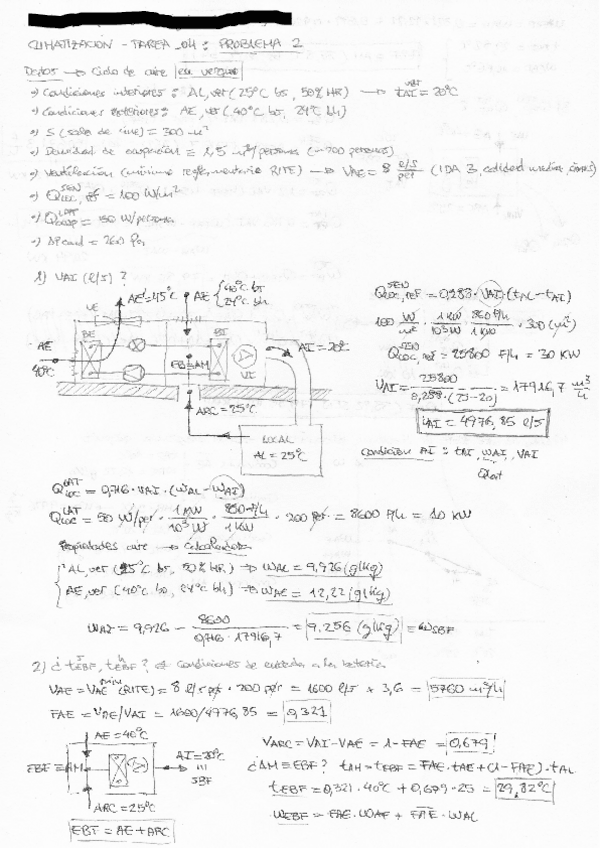 CLIMATIZACIÓN - TAREA_04: PROBLEMA 2
Datos → Ciclo de aire en verano
•) Condiciones interiores: AL, ver (25°C bs, 50% HR) → tAI = 20°C
•) Condiciones exteriores: AE, ver (40°C bs, 24°C bh)
•) S (sala de cine) = 300 m²
•) Densidad de ocupación = 1,5 m²/persona (~200 personas)
•) Ventilación (mínimo reglamentario RITE) → VAE = 8 l/s/per (IDA 3, calidad media, cines)
•) Q SEN LOC, ref = 100 W/m²
•) Q LAT ocup = 50 W/persona
•) ΔPcond = 260 Pa
1) VAI (l/s)?
AE' = 45°C
AE { 40°C bs
24°C bh
VE
BE
BI
AE
40°C
EB=AM
VI
AI = 20°C
ARC = 25°C
LOCAL
AL = 25°C
Q SEN LOC, ref = 0,288 · VAI · (tAL - tAI)
100 W/m² · 1 KW/10³ W · 860 F/h/1 KW · 300 (m²)
Q SEN LOC, ref = 25800 F/h = 30 KW
VAI = 25800 / 0,288 · (25-20) = 17916,7 m³/h
VAI = 4976,85 l/s
Condición AI: tAI, wAI, VAI
Qlat
Q LAT LOC = 0,716 · VAI · (wAL - wAI)
Q LAT LOC = 50 W/per · 1 KW/10³ W · 860 F/h/1 KW · 200 per = 8600 F/h = 10 KW
Propiedades aire → calculadora
{ AL, ver (25°C bs, 50% HR) ⇒ wAL = 9,926 (g/kg)
AE, ver (40°C bs, 24°C bh) ⇒ wAE = 12,22 (g/kg)
wAI = 9,926 - 8600 / 0,716 · 17916,7 = 9,256 (g/kg) = wSBF
2) ¿ tsEBF, thEBF ? Condiciones de entrada a la batería
VAE = VAE min (RITE) = 8 l/s per · 200 per = 1600 l/s × 3,6 = 5760 m³/h
FAE = VAE/VAI = 1600/4976,85 = 0,321
AE = 40°C
EBF = AM
AI = 20°C
SBF
ARC = 25°C
EBF = AE + ARC
VARC = VAI - VAE = 1 - FAE = 0,679
¿AM ≡ EBF? tAM = tEBF = FAE · tAE + (1 - FAE) · tAL
tEBF = 0,321 · 40°C + 0,679 · 25 = 29,82°C
wEBF = FAE · wAE + FAR · wAL